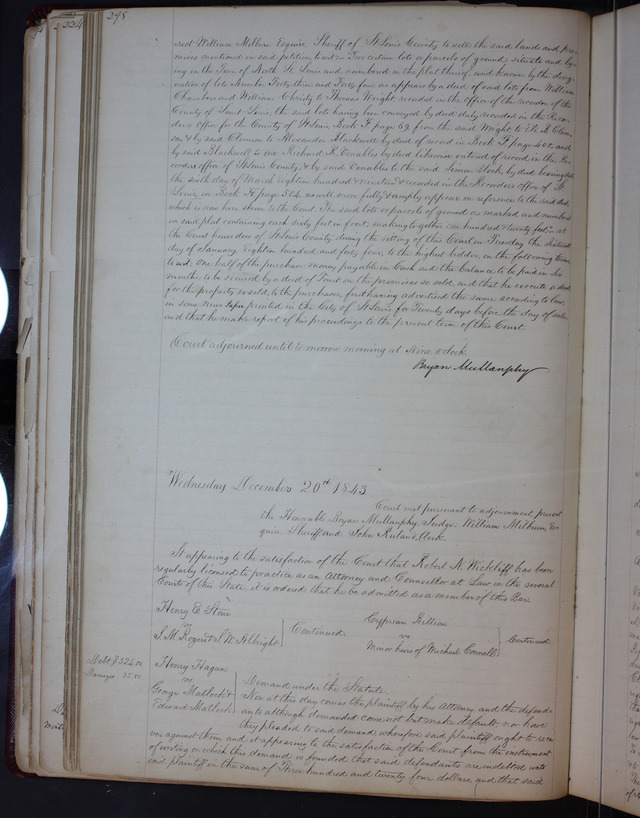 298
rised William Milburn Esquire Sheriff of St Louis County to sell the said lands and pre-
mises mentioned in said petition, to wit: Two certain lots or parcels of ground, situate and ly-
ing in the Town of North St. Louis and numbered in the plat thereof and known by the desig-
nation of lots Number Forty three and Forty four as appears by a deed of said lots from William
Chambers and William Christy to Thomas Wright recorded in the office of the recorder of the
County of Saint Louis, the said lots having been conveyed by deed duly recorded in the Recor-
ders office for the County of St Louis, Book F page 69 from the said Wright to
by said to Alexander Blackwell by deed of record in Book F page 402 and
by said Blackwell to one Richard K. Venables by deed likewise entered of record in the Re-
corders office of St Louis County & by said Venables to the said Simon Block, by deed bearing date
the sixth day of March eighteen hundred & nineteen & recorded in the Recorders office of St
Louis, in Book H page 504, as will more fully & amply appear on reference to the said deed,
which is now here shown to the Court. The said lots or parcels of ground as marked and numbered
on said plat containing each sixty feet in front, making together one hundred & twenty feet at
the Court house door of St Louis County during the sitting of this Court on Tuesday the Sixteenth
day of January eighteen hundred and forty four, to the highest bidder, on the following terms,
to wit: One half of the purchase money payable in Cash and the balance to be paid in six
months, to be secured by a deed of Trust on the premises so sold, and that he execute a deed
for the property so sold, to the purchaser, first having advertised the same according to law,
in some News paper printed in the City of St Louis for Twenty days before the day of sale,
and that he make report of his proceedings to the present term of this Court.
Court adjourned until to morrow morning at Nine o'clock.
Bryan Mullanphy
Wednesday December 20th 1843.
Court met pursuant to adjournment, present
the Honorable Bryan Mullanphy, Judge; William Milburn, Es-
quire Sheriff and John Ruland, Clerk.
It appearing to the satisfaction of the Court that Robert N. Wickliff has been
regularly licensed to practice as an Attorney and Counsellor at Law in the several
Courts of this State, it is ordered that he be admitted as a member of this Bar.
Henry E. Stone
vs
S. M. Rogers & S. W. Albright
Continued.
Cyprian Billion
vs
Minor heirs of Michael Connell
Continued.
Debt $324.00
Damages 35.00
Henry Hagan
vs
George Matlock &
Edward Matlock
Demand under the Statute.
Now at this day comes the plaintiff by his Attorney and the defend-
ants although demanded come not but make default, nor have
they pleaded to said demand, wherefore said plaintiff ought to reco-
ver against them, and it appearing to the satisfaction of the Court from the instrument
of writing on which this demand is founded that said defendants are indebted unto
said plaintiff in the sum of Three hundred and twenty four dollars, and that said